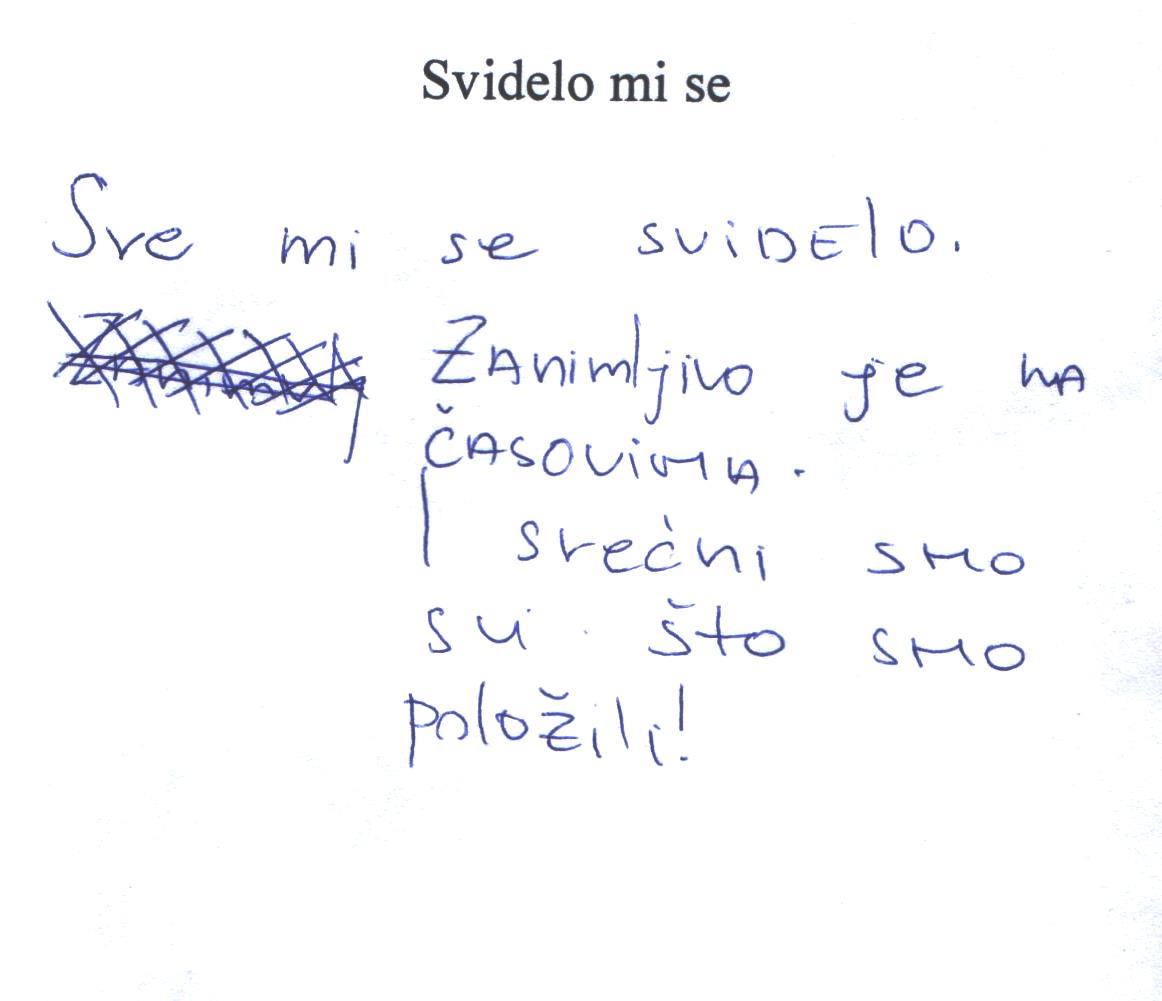 Svidelo mi se
Sve mi se sviDElo.
ZAnimljivo je nA
ČASOviMA.
I srećni sMo
svi što sMo
položili!